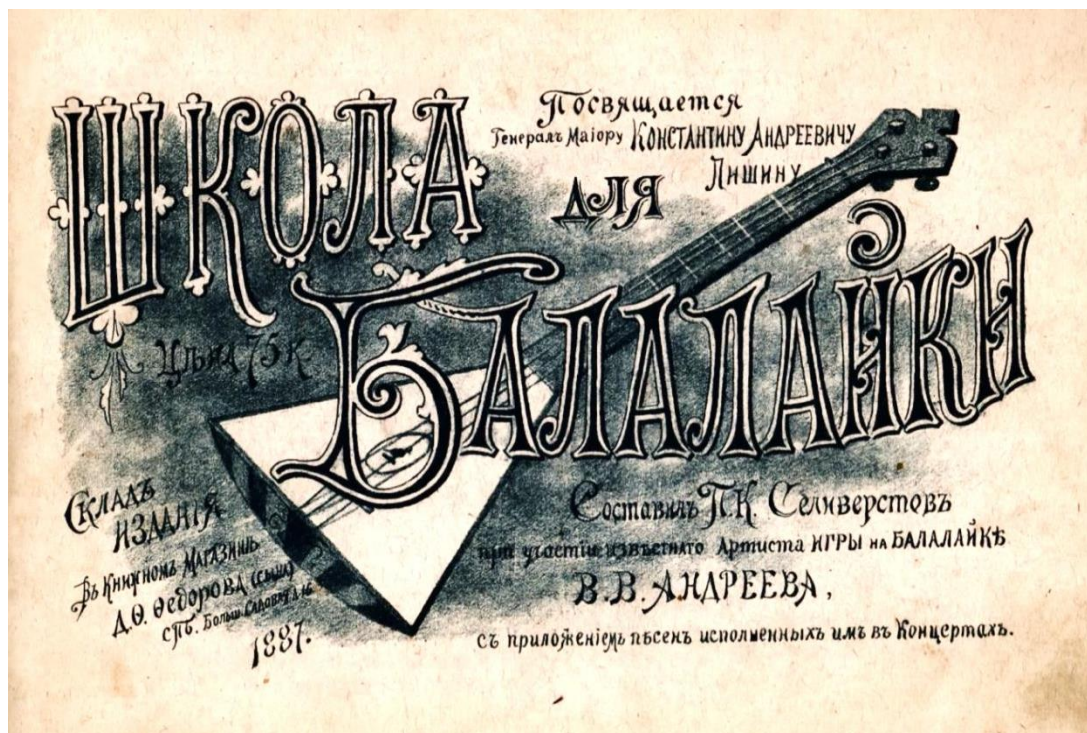 ШКОЛА
Посвящается
Генералъ Маіору КОНСТАНТИНУ АНДРЕЕВИЧУ
ЛИШИНУ
ДЛЯ
БАЛАЛАЙКИ
Цѣна 75 К.
СКЛАДЪ
ИЗДАНІЯ
Въ Книжномъ Магазинѣ
Д. Ѳ. Ѳедорова (сына)
СПб. Больш. Садовая д. 16
1887.
Составилъ П. К. Селиверстовъ
при участіи извѣстнаго Артиста ИГРЫ на БАЛАЛАЙКѢ
В. В. АНДРЕЕВА,
съ приложеніемъ пѣсенъ исполненныхъ имъ въ Концертахъ.